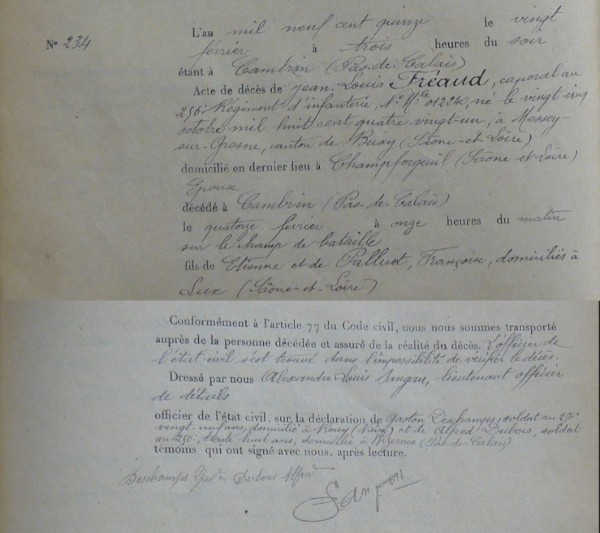 N° 234
L'an mil neuf cent quinze le vingt
février à trois heures du soir
étant à Cambrin (Pas-de-Calais)
Acte de décès de Jean-Louis Fréaud, caporal au
256e Régiment d'infanterie, N° Mle 012240, né le vingt-cinq
octobre mil huit cent quatre-vingt-un, à Messey-
sur-Grosne, canton de Buxy (Saône-et-Loire)
domicilié en dernier lieu à Champforgeuil (Saône-et-Loire)
Epoux
décédé à Cambrin (Pas-de-Calais)
le quatorze février à onze heures du matin
sur le champ de bataille
fils de Etienne et de Palluet, Françoise, domiciliés à
Lux (Saône-et-Loire)
Conformément à l'article 77 du Code civil, nous nous sommes transporté
auprès de la personne décédée et assuré de la réalité du décès. L'officier de
l'état civil s'est trouvé dans l'impossibilité de vérifier le décès.
Dressé par nous Alexandre Louis lieutenant officier
de détails
officier de l'état civil, sur la déclaration de Gaston Deschamps, soldat au 256e
vingt-neuf ans, domicilié à (Nièvre) et de Alfred Dubois, soldat
au 256e trente huit ans, domicilié à Wizernes (Pas-de-Calais)
témoins qui ont signé avec nous, après lecture.
Deschamps Gaston Dubois Alfred